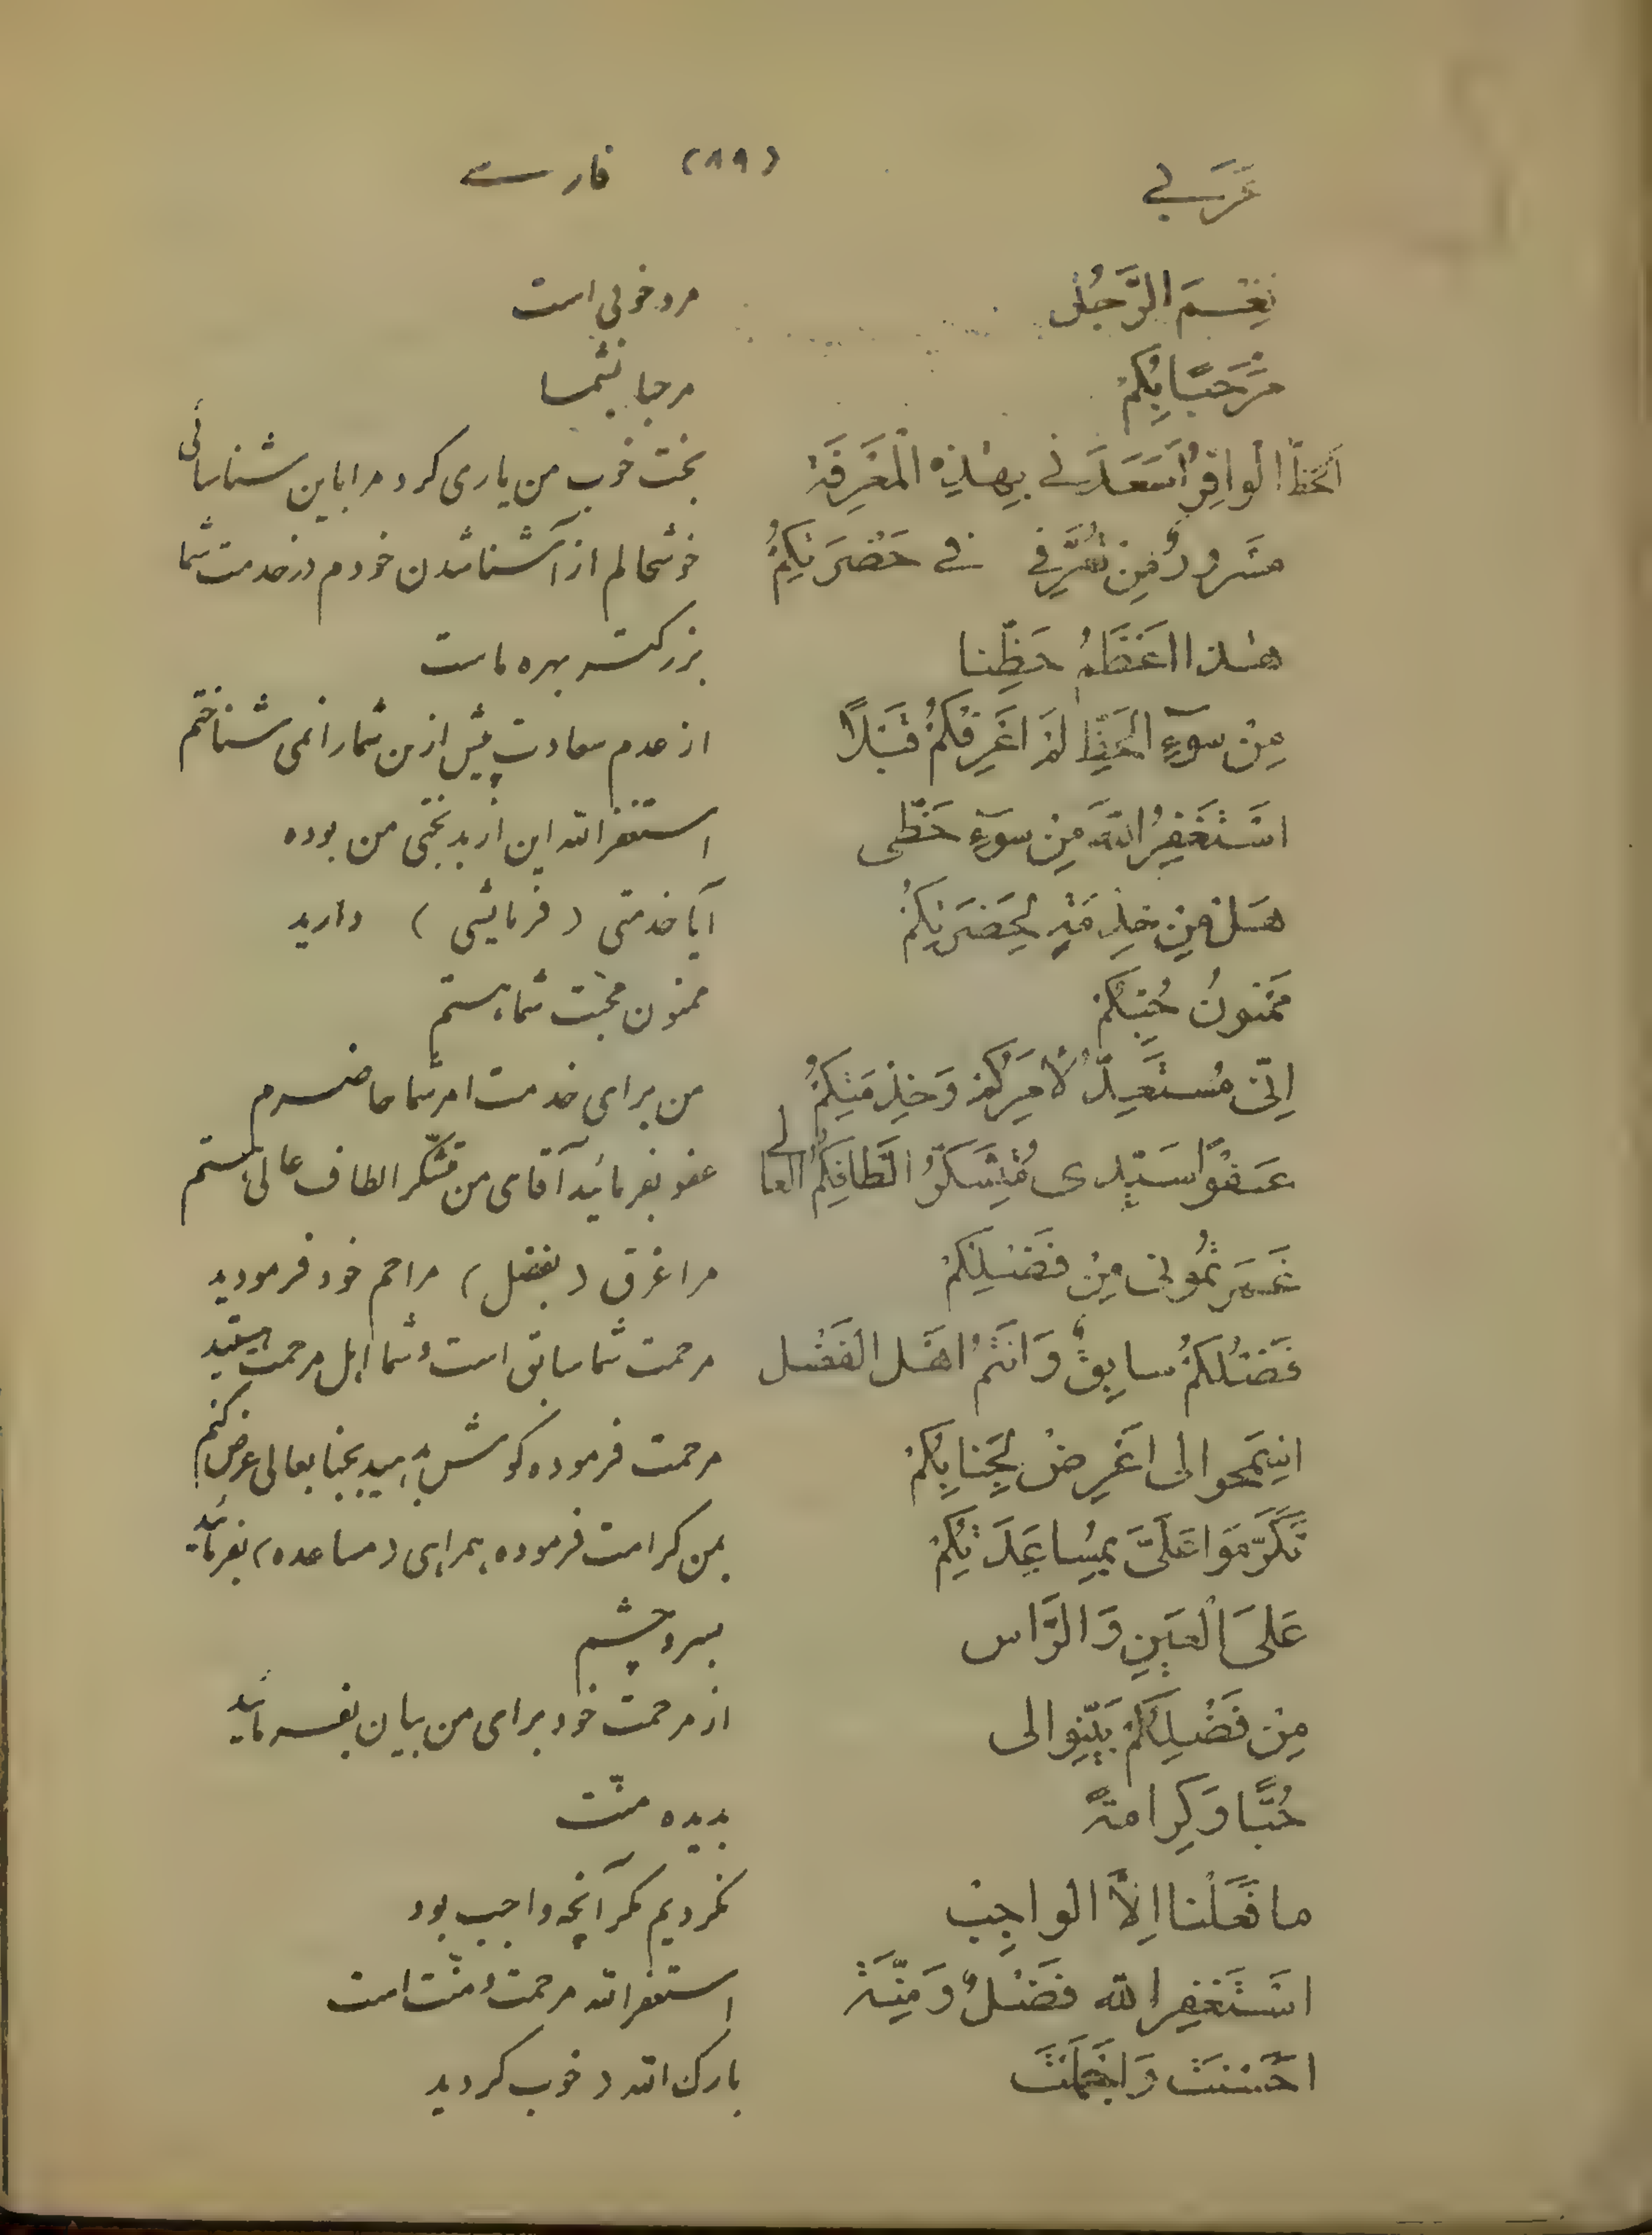 عَرَبي (۸۹) فارسے
نِعْمَ الرَّجُلُ مرد خوبی است
مَرْحَبًا بِكُمْ مرحبا بشما
اَلحَظُّ الوافِرُ اَسْعَدَني بِهٰذِهِ الْمَعْرِفَةْ بخت خوب من یاری کرد مرا باین شناسائی
مَسْرورٌ مِنْ تَعَرُّفي في حَضْرَتِكُمْ خوشحالم از آشنا شدن خودم در خدمت شما
هٰذا اَعْظَمُ حَظِّنا بزرکتر بهره ماست
مِنْ سوٓءِ الحَظِّ لَمْ اَعْرِفْكُمْ قَبْلاً از عدم سعادت پیش از من شما را نمی شناختم
اسْتَغْفِرُ اللهَ مِنْ سوٓءِ حَظّی استغفر الله این از بدبختی من بوده
هَلْ مِنْ خِدْمَةٍ لِحَضْرَتِكُمْ آیا خدمتی (فرمایشی) دارید
مَمْنونُ حُبِّكُمْ ممنون محبّت شما هستم
اِنّی مُسْتَعِدٌّ لاَمْرِكُمْ وَخِدْمَتِكُمْ من برای خدمت امر شما حاضرم
عَفْوًا سَيِّدی مُتَشَكِّرُ اَلْطافِكُمُ العالی عفو بفرمائید آقای من متشکّر الطاف عالی هستم
غَمَرْتُمُونی مِنْ فَضْلِكُمْ مرا غرق (بفضل) مراحم خود فرمودید
فَضْلُكُمْ سابِقٌ وَاَنْتُمْ اَهْلُ الفَضْل مرحمت شما سابق است و شما اهل مرحمت هستید
اِسْمَحوا لی اَعْرِضْ لِجَنابِكُمْ مرحمت فرموده کوش بدهید بجنابعالی عرض کنم
تَكَرَّمَوا عَلَیَّ بِمُساعَدَتِكُمْ بمن کرامت فرموده همراهی (مساعده) بفرمائید
عَلیَ الْعَيْنِ وَالرَّاس بسر و چشم
مِنْ فَضْلِكُمْ بَيِّنوا لی از مرحمت خود برای من بیان بفرمائید
حُبًّا وَكَرامةً بدیده منّت
ما فَعَلْنا اِلاَّ الواجِبْ نکردیم مگر آنچه واجب بود
اسْتَغْفِر الله فَضْلٌ وَمِنَّةْ استغفر الله مرحمت و منّت است
احْسَنْتَ وَاَجْمَلْتَ بارک الله (خوب کردید